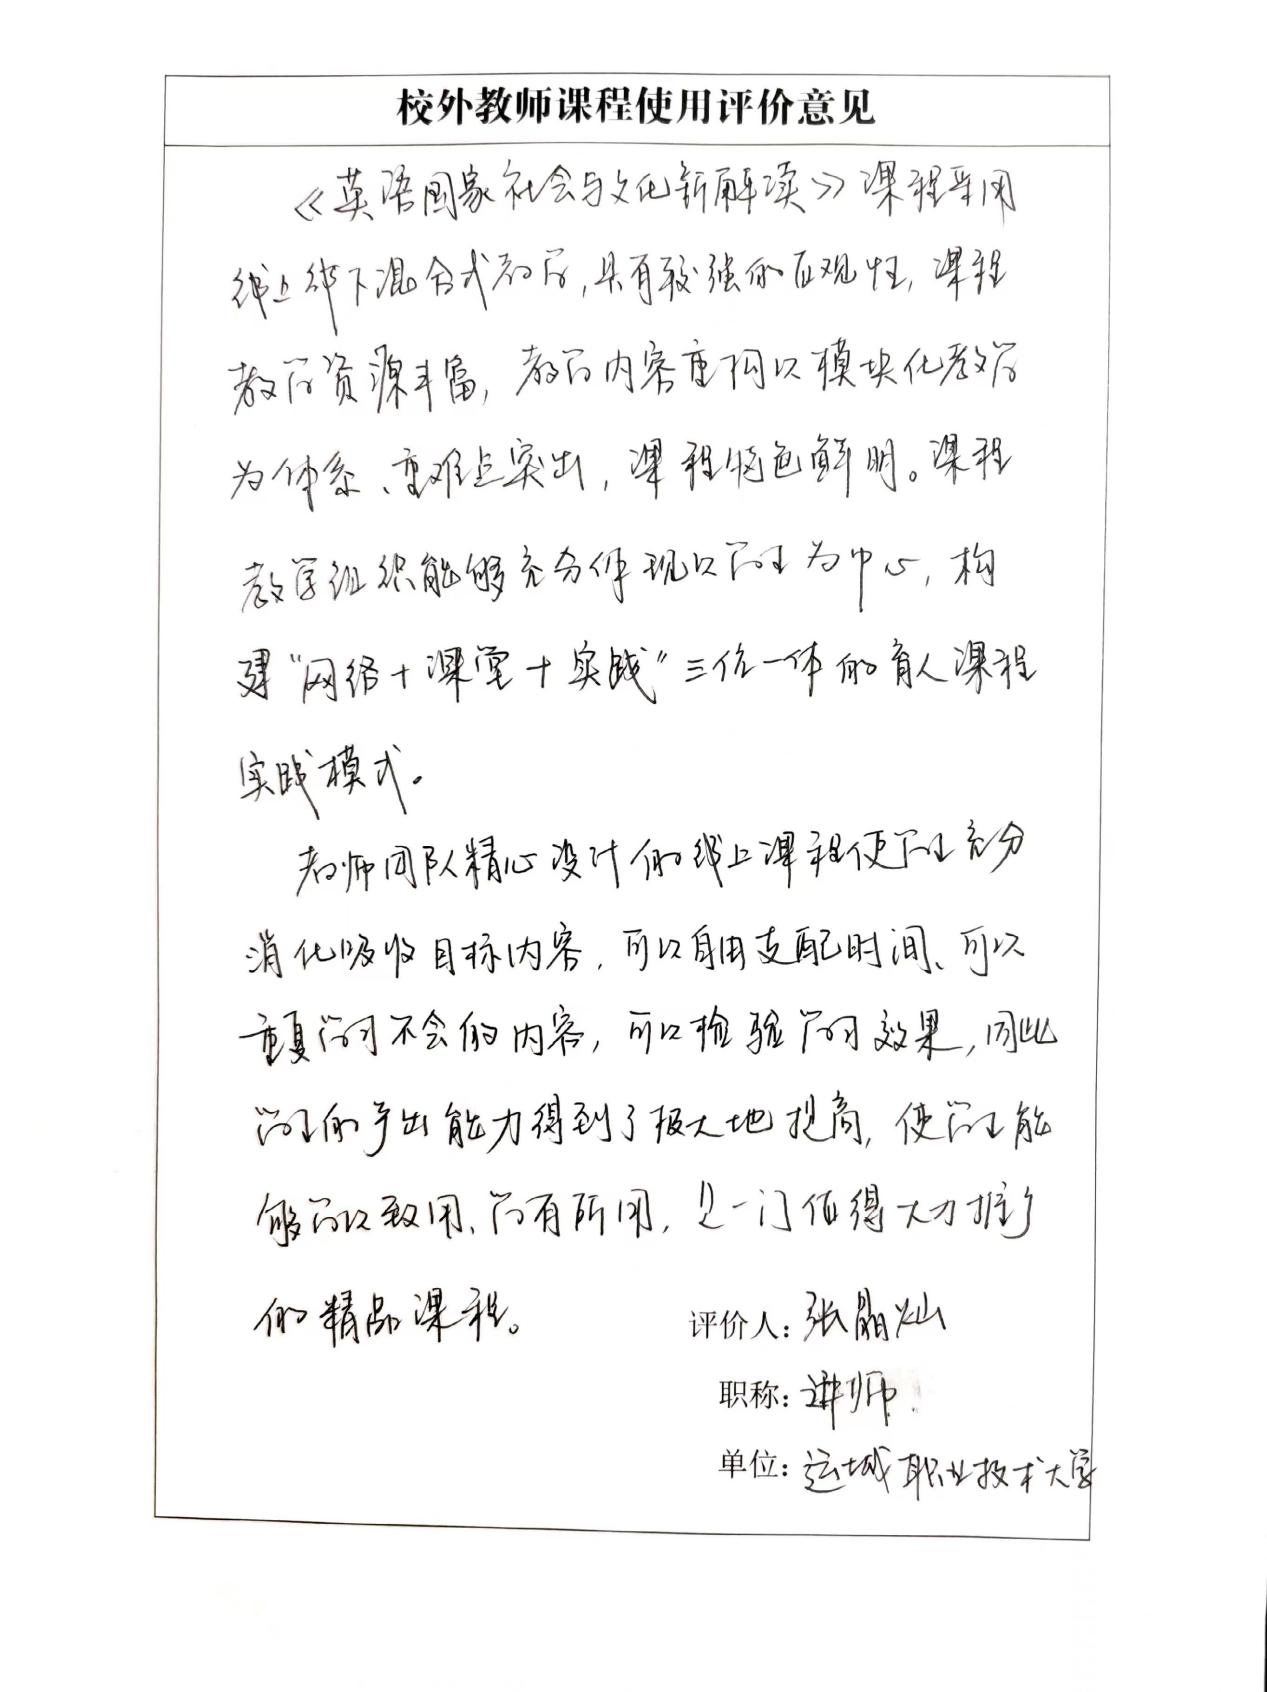 校外教师课程使用评价意见
《英语国家社会与文化新解读》课程采用
线上线下混合式教学,具有较强的直观性,课程
教学资源丰富,教学内容重构以模块化教学
为体系、重难点突出,课程特色鲜明。课程
教学组织能够充分体现以学生为中心,构
建“网络+课堂+实践”三位一体的育人课程
实践模式。
教师团队精心设计的线上课程使学生充分
消化吸收目标内容,可以自由支配时间、可以
重复学习不会的内容,可以检验学习效果,因此
学生的产出能力得到了极大地提高,使学生能
够学以致用、学有所用,是一门值得大力推广
的精品课程。
评价人:张晶灿
职称:讲师
单位:运城职业技术大学